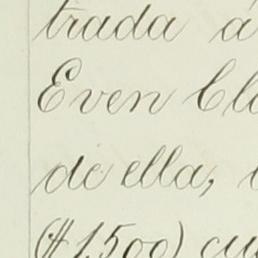 trada á
Even Cla
de ella,
($1,500) cu